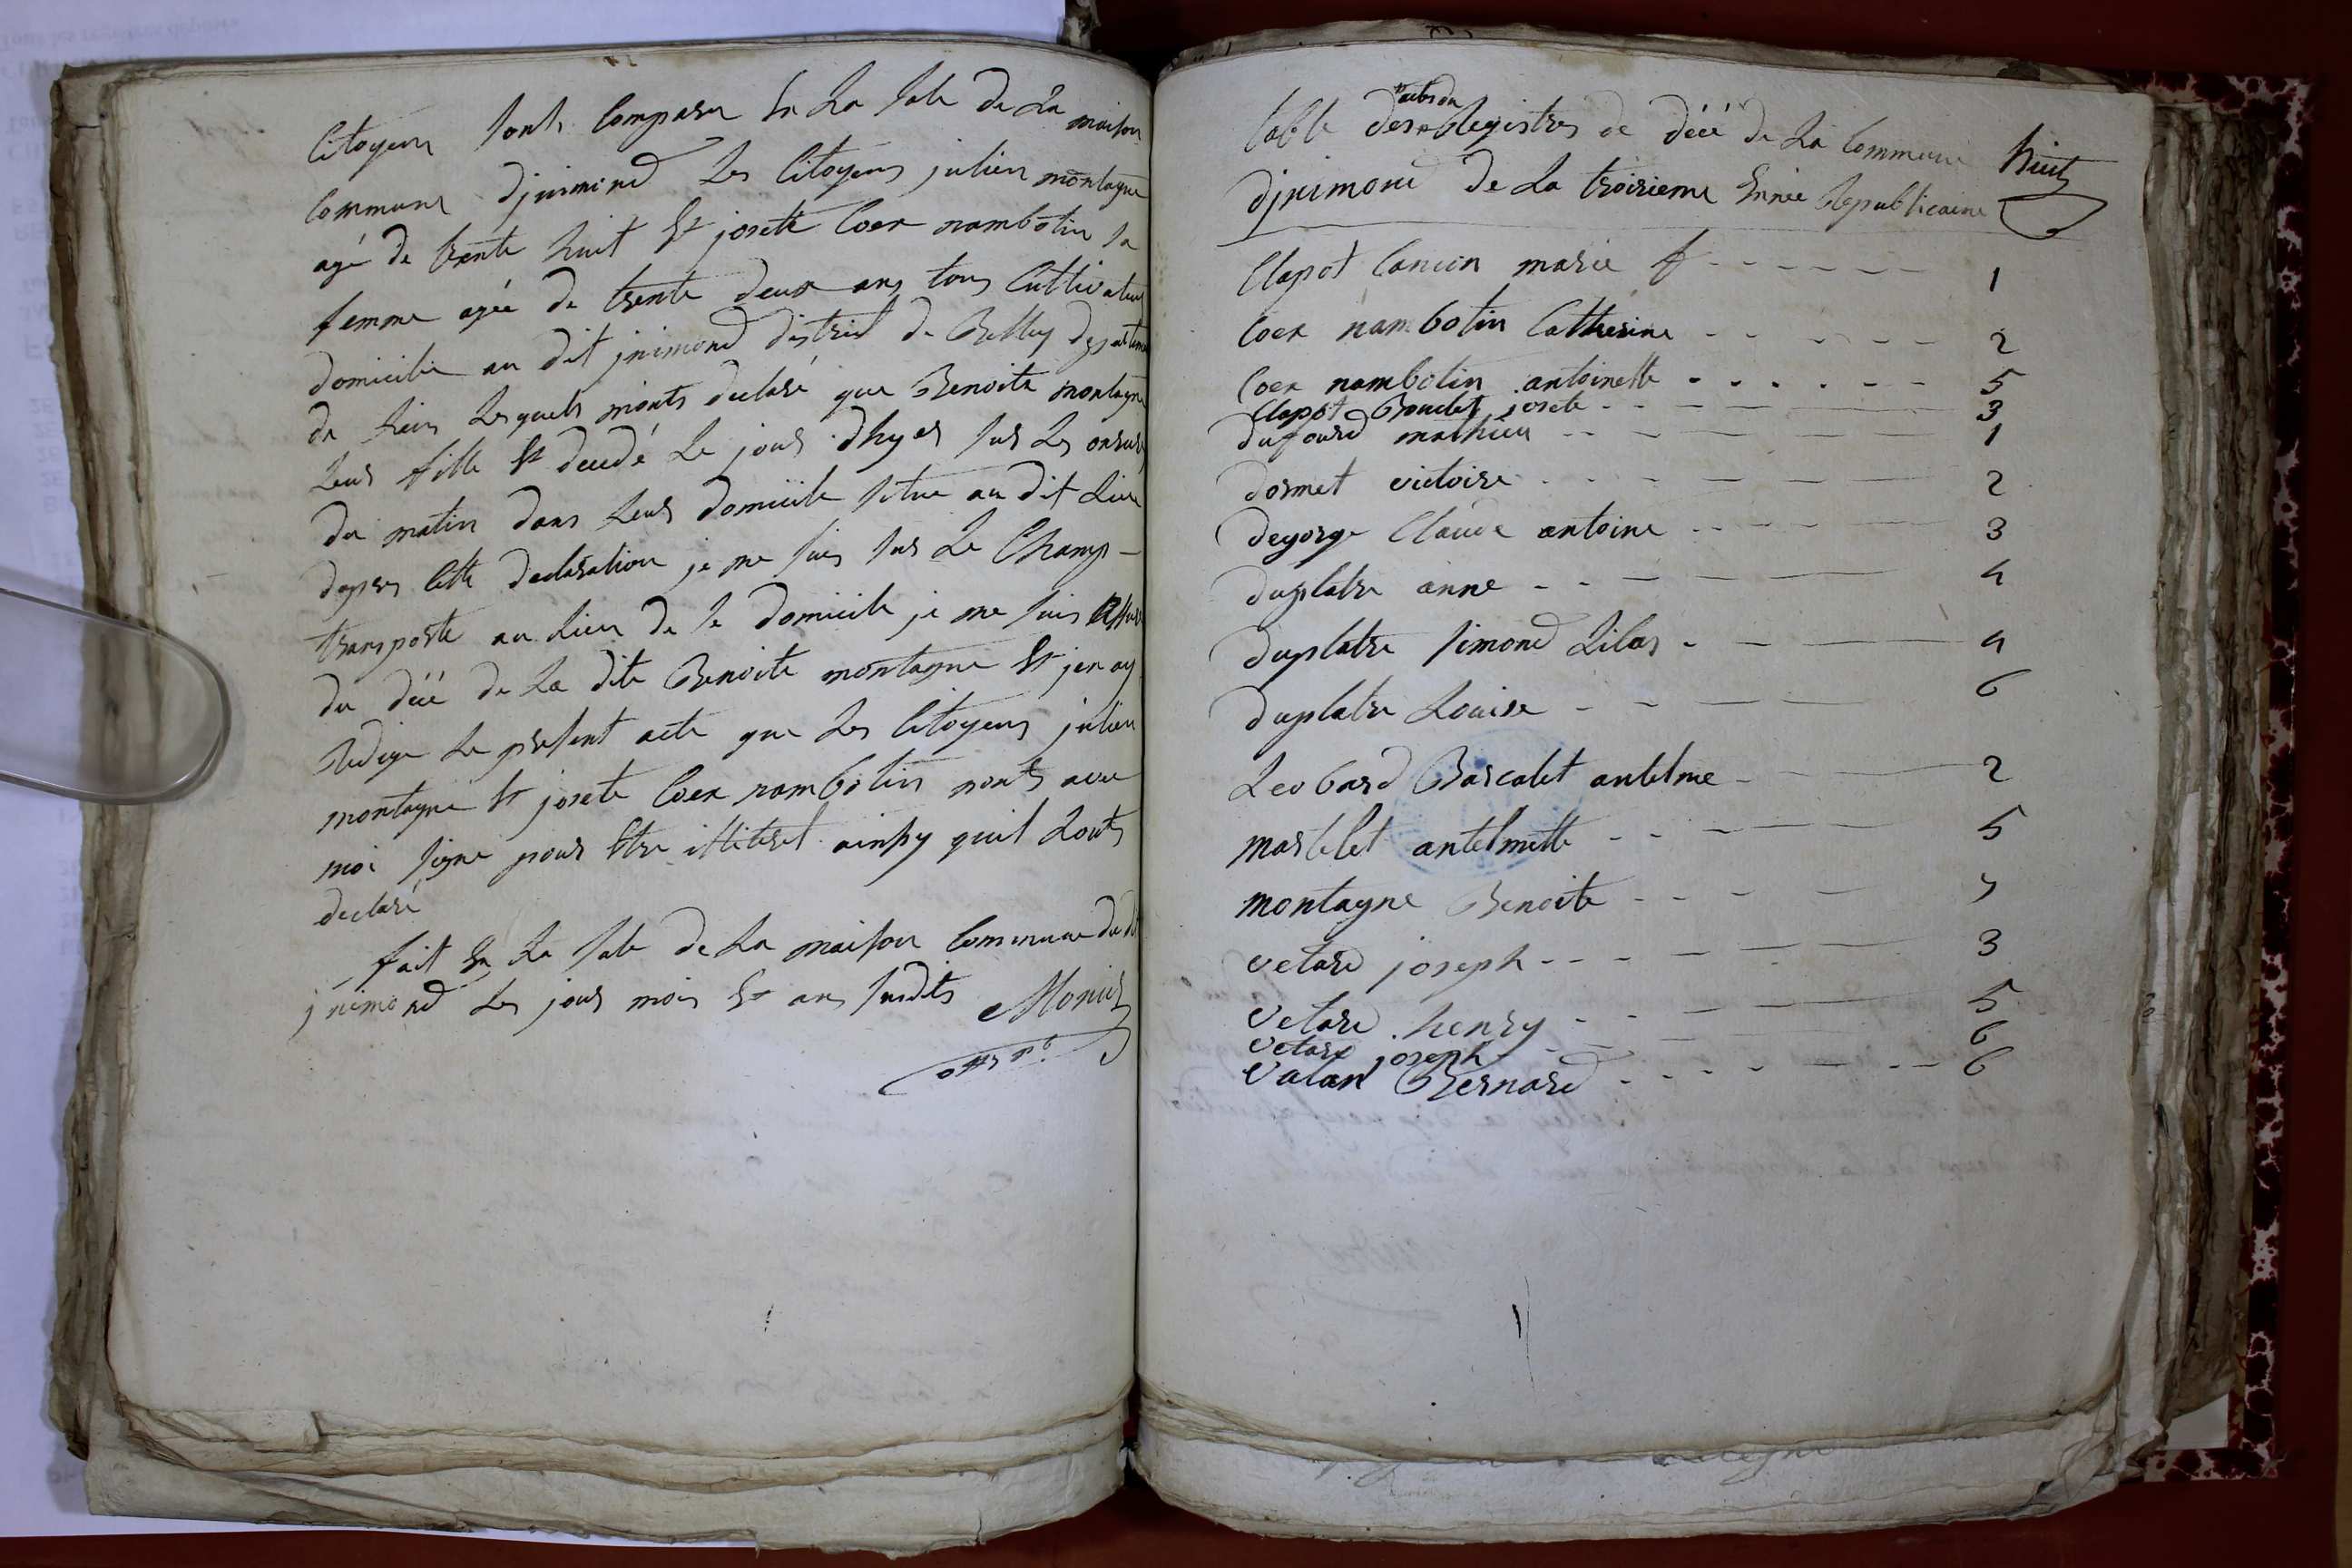 Citoyens sonts comparu En La sale de La maison
commune djnimond Les Citoyens julien montagne
agé de trente huit Et josette Coex nambotin sa
femme agée de trente deux ans tous Cultivateurs
domicilie au dit jnimond district de Belley departeme
de Lain Lesquels m'onts declaré que Benoite montagne
Leur fille Et decedé Le jour dhyer sur Les onseurs
du matin dans Leur domicile situe au dit Lieu
dapres Cette declaration je me suis sur Le Champ
transporte au Lieu de se domicile je me suis assure
du décé de La dite Benoite montagne Et jen ay
redige Le present acte que Les Citoyens julien
montagne Et josete Coex nambotin nonts avec
moi signe pour Etre illiteret ainsy quil Lonts
declaré
fait En La sale de La maison Commune du dt
jnimond Les jour mois Et ans susdits Monier
offr pc
table des actes du Registres de décé de La Commune huit
djnimond de La troisieme Année Republicaine
Clapot Cancon marie f 1
Coex nambotin Catherine 2
Coex nambotin antoinette 5
Clapot Bouclet josete 3
dufourd mathieu 1
dormet victoire 2
degorge Claude antoine 3
duplatre anne 4
duplatre simond Lilas 4
duplatre Louise 6
Leobard Barcalet antelme 2
martelet antelmette 5
montagne Benoite 7
vetard joseph 3
vetard henry 5
vetard joseph 6
vatan Bernard 6